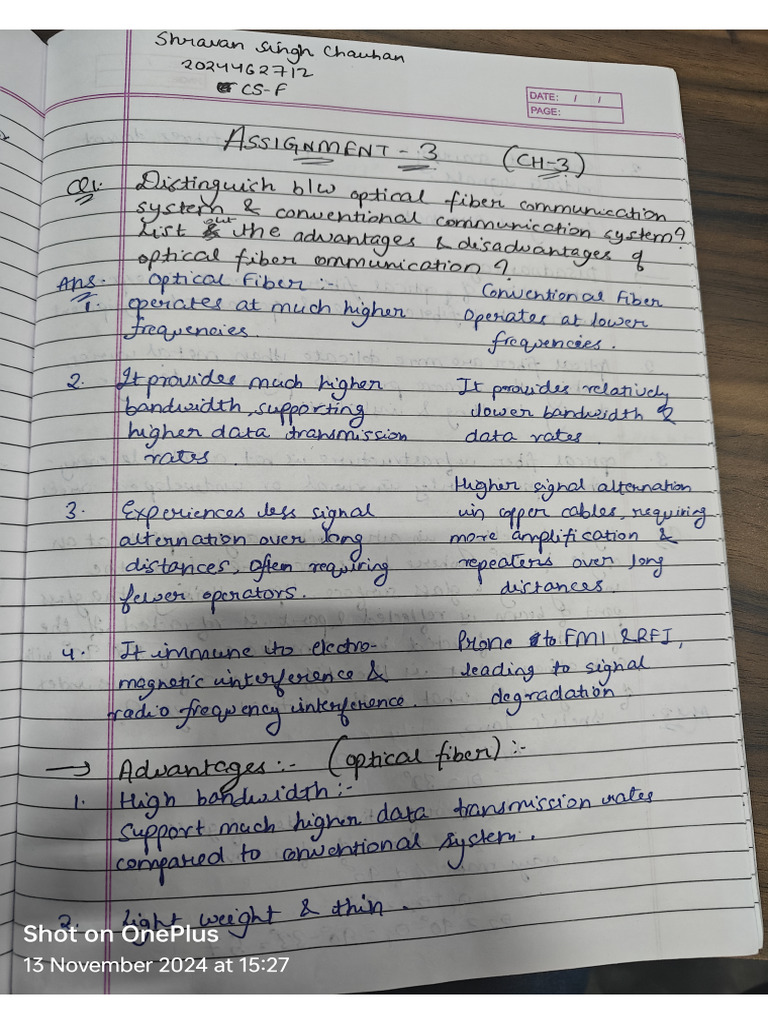 Shravan Singh Chauhan
2024462712
CS-F
DATE: / /
PAGE:
ASSIGNMENT - 3 (CH-3)
Q1. Distinguish b/w optical fiber communication
system & conventional communication system?
List out the advantages & disadvantages of
optical fiber ommunication?
Ans. Optical Fiber :- Conventional Fiber
1. operates at much higher Operates at lower
frequencies. frequencies.
2. It provides much higher It provides relatively
bandwidth, supporting lower bandwidth &
higher data transmission data rates.
rates.
Higher signal alternation
3. Experiences less signal in copper cables, requiring
alternation over long more amplification &
distances, often requiring repeaters over long
fewer operators. distances.
4. It immune to electro- Prone to FMI & RFI,
magnetic interference & leading to signal
radio frequency interference. degradation
→ Advantages :- (optical fiber) :-
1. High bandwidth :-
Support much higher data transmission rates
compared to conventional system.
2. Light weight & thin.
Shot on OnePlus
13 November 2024 at 15:27